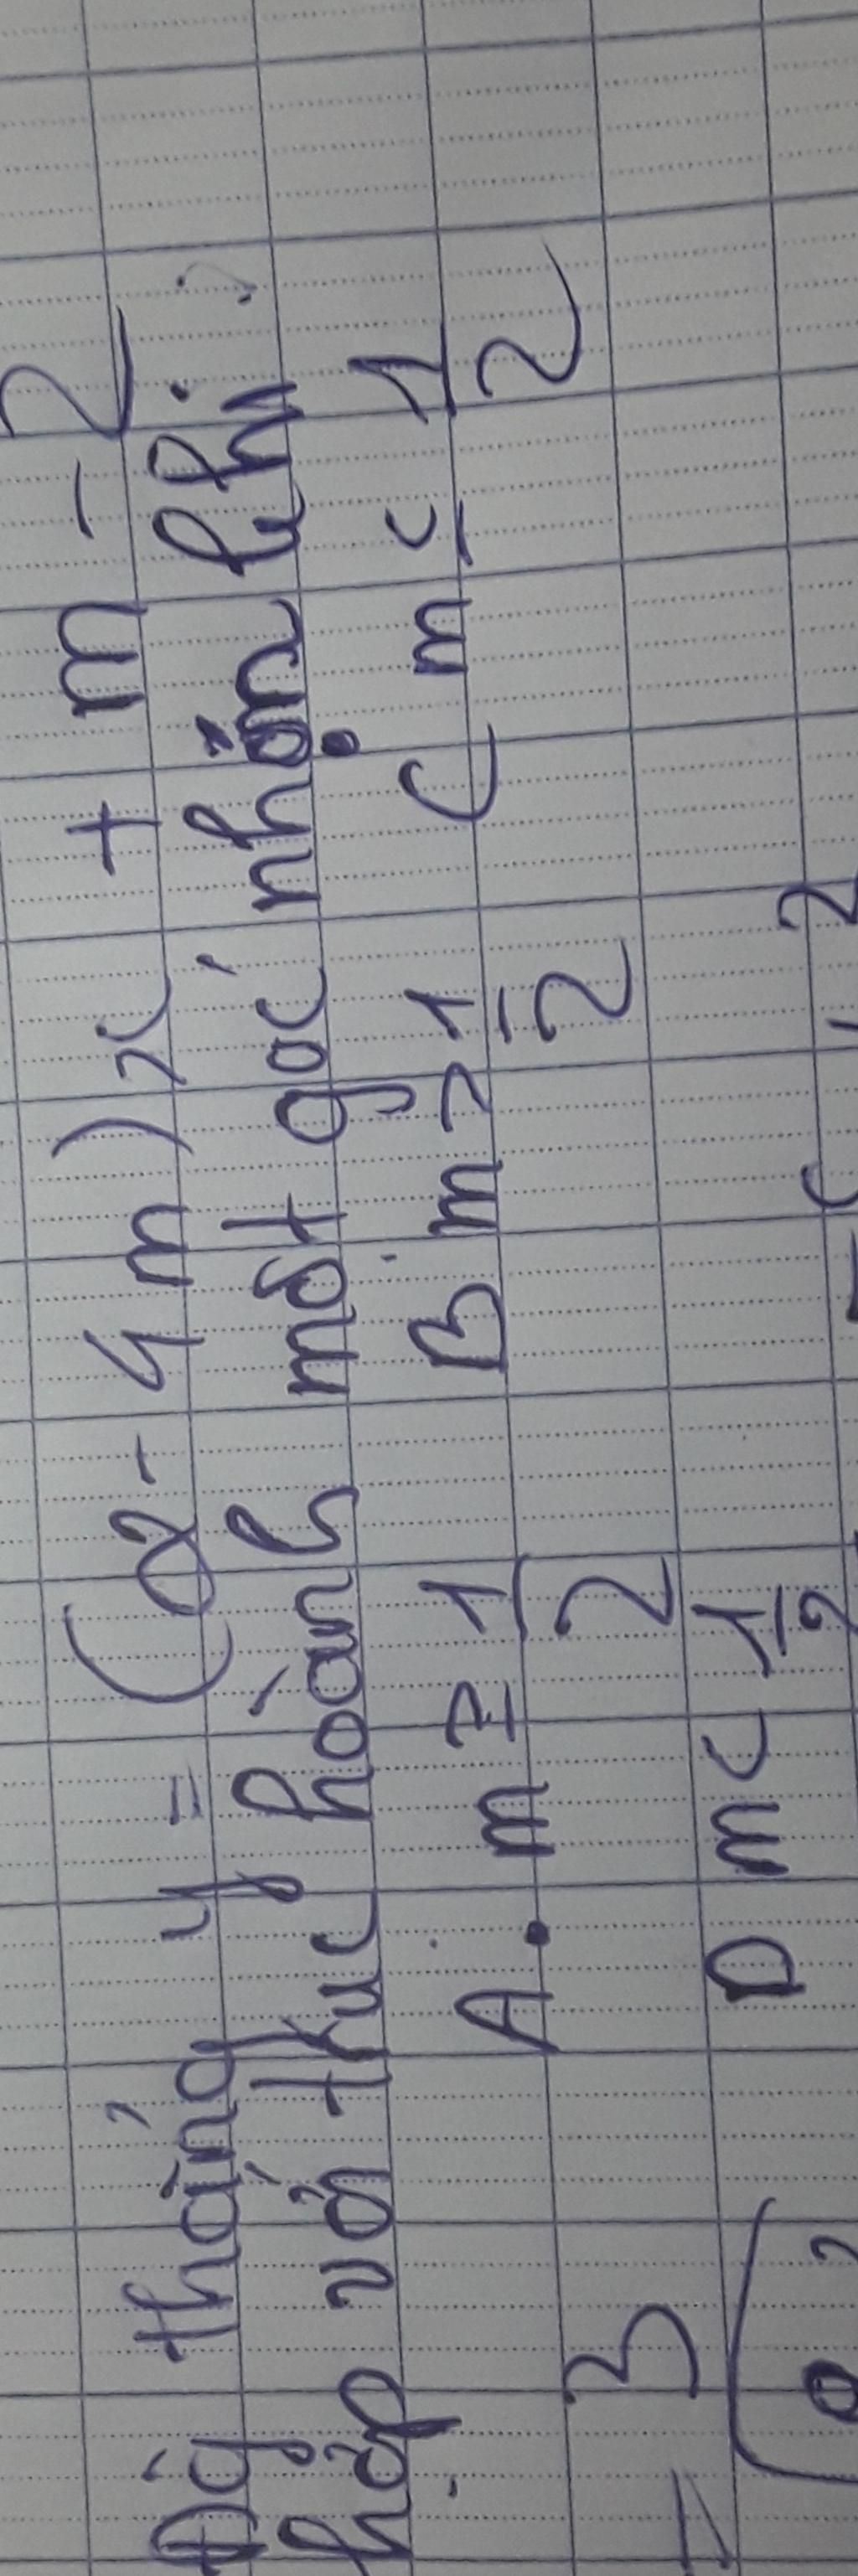 Đg thẳng y = (2 - 4m)x + m - 2
hợp với trục hoành một góc nhọn khi:
A. m ≥ 1/2 B m > 1/2 C m ≤ 1/2
D m < 1/2
3